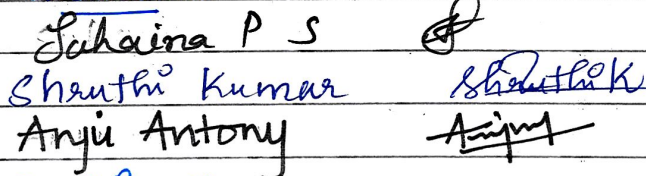 Suhaina P S
Shruthi Kumar Shruthi K
Anju Antony Anjuy